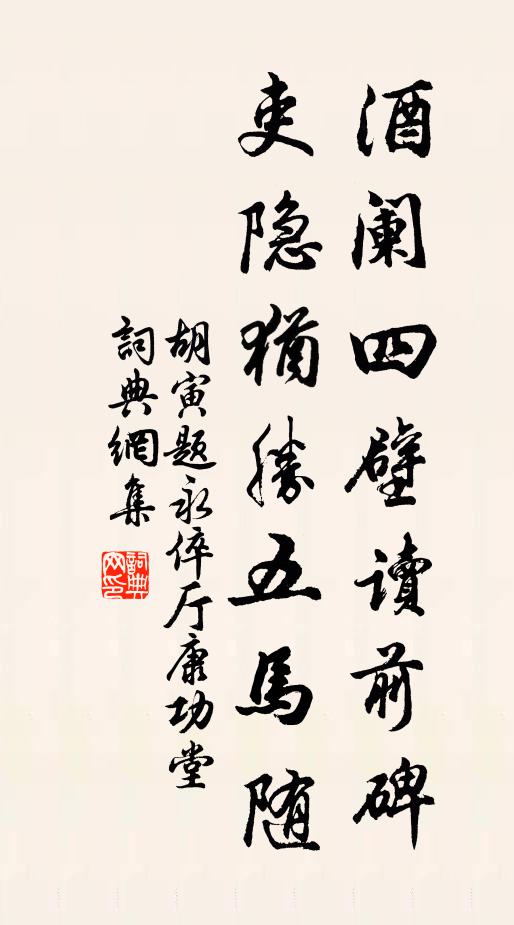 酒阑四壁读前碑
吏隐犹勝五馬随
胡寅题永倅厅康功堂
詞典網集
詞典網印